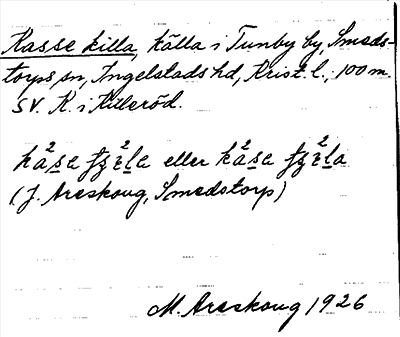 Kasse killa, källa i Tunby by, Smeds-
torps sn, Ingelstads hd, Krist. l., 100 m
SV. K. i Killeröd.
eller
(J. Areskoug, Smedstorp)
M. Areskoug 1926